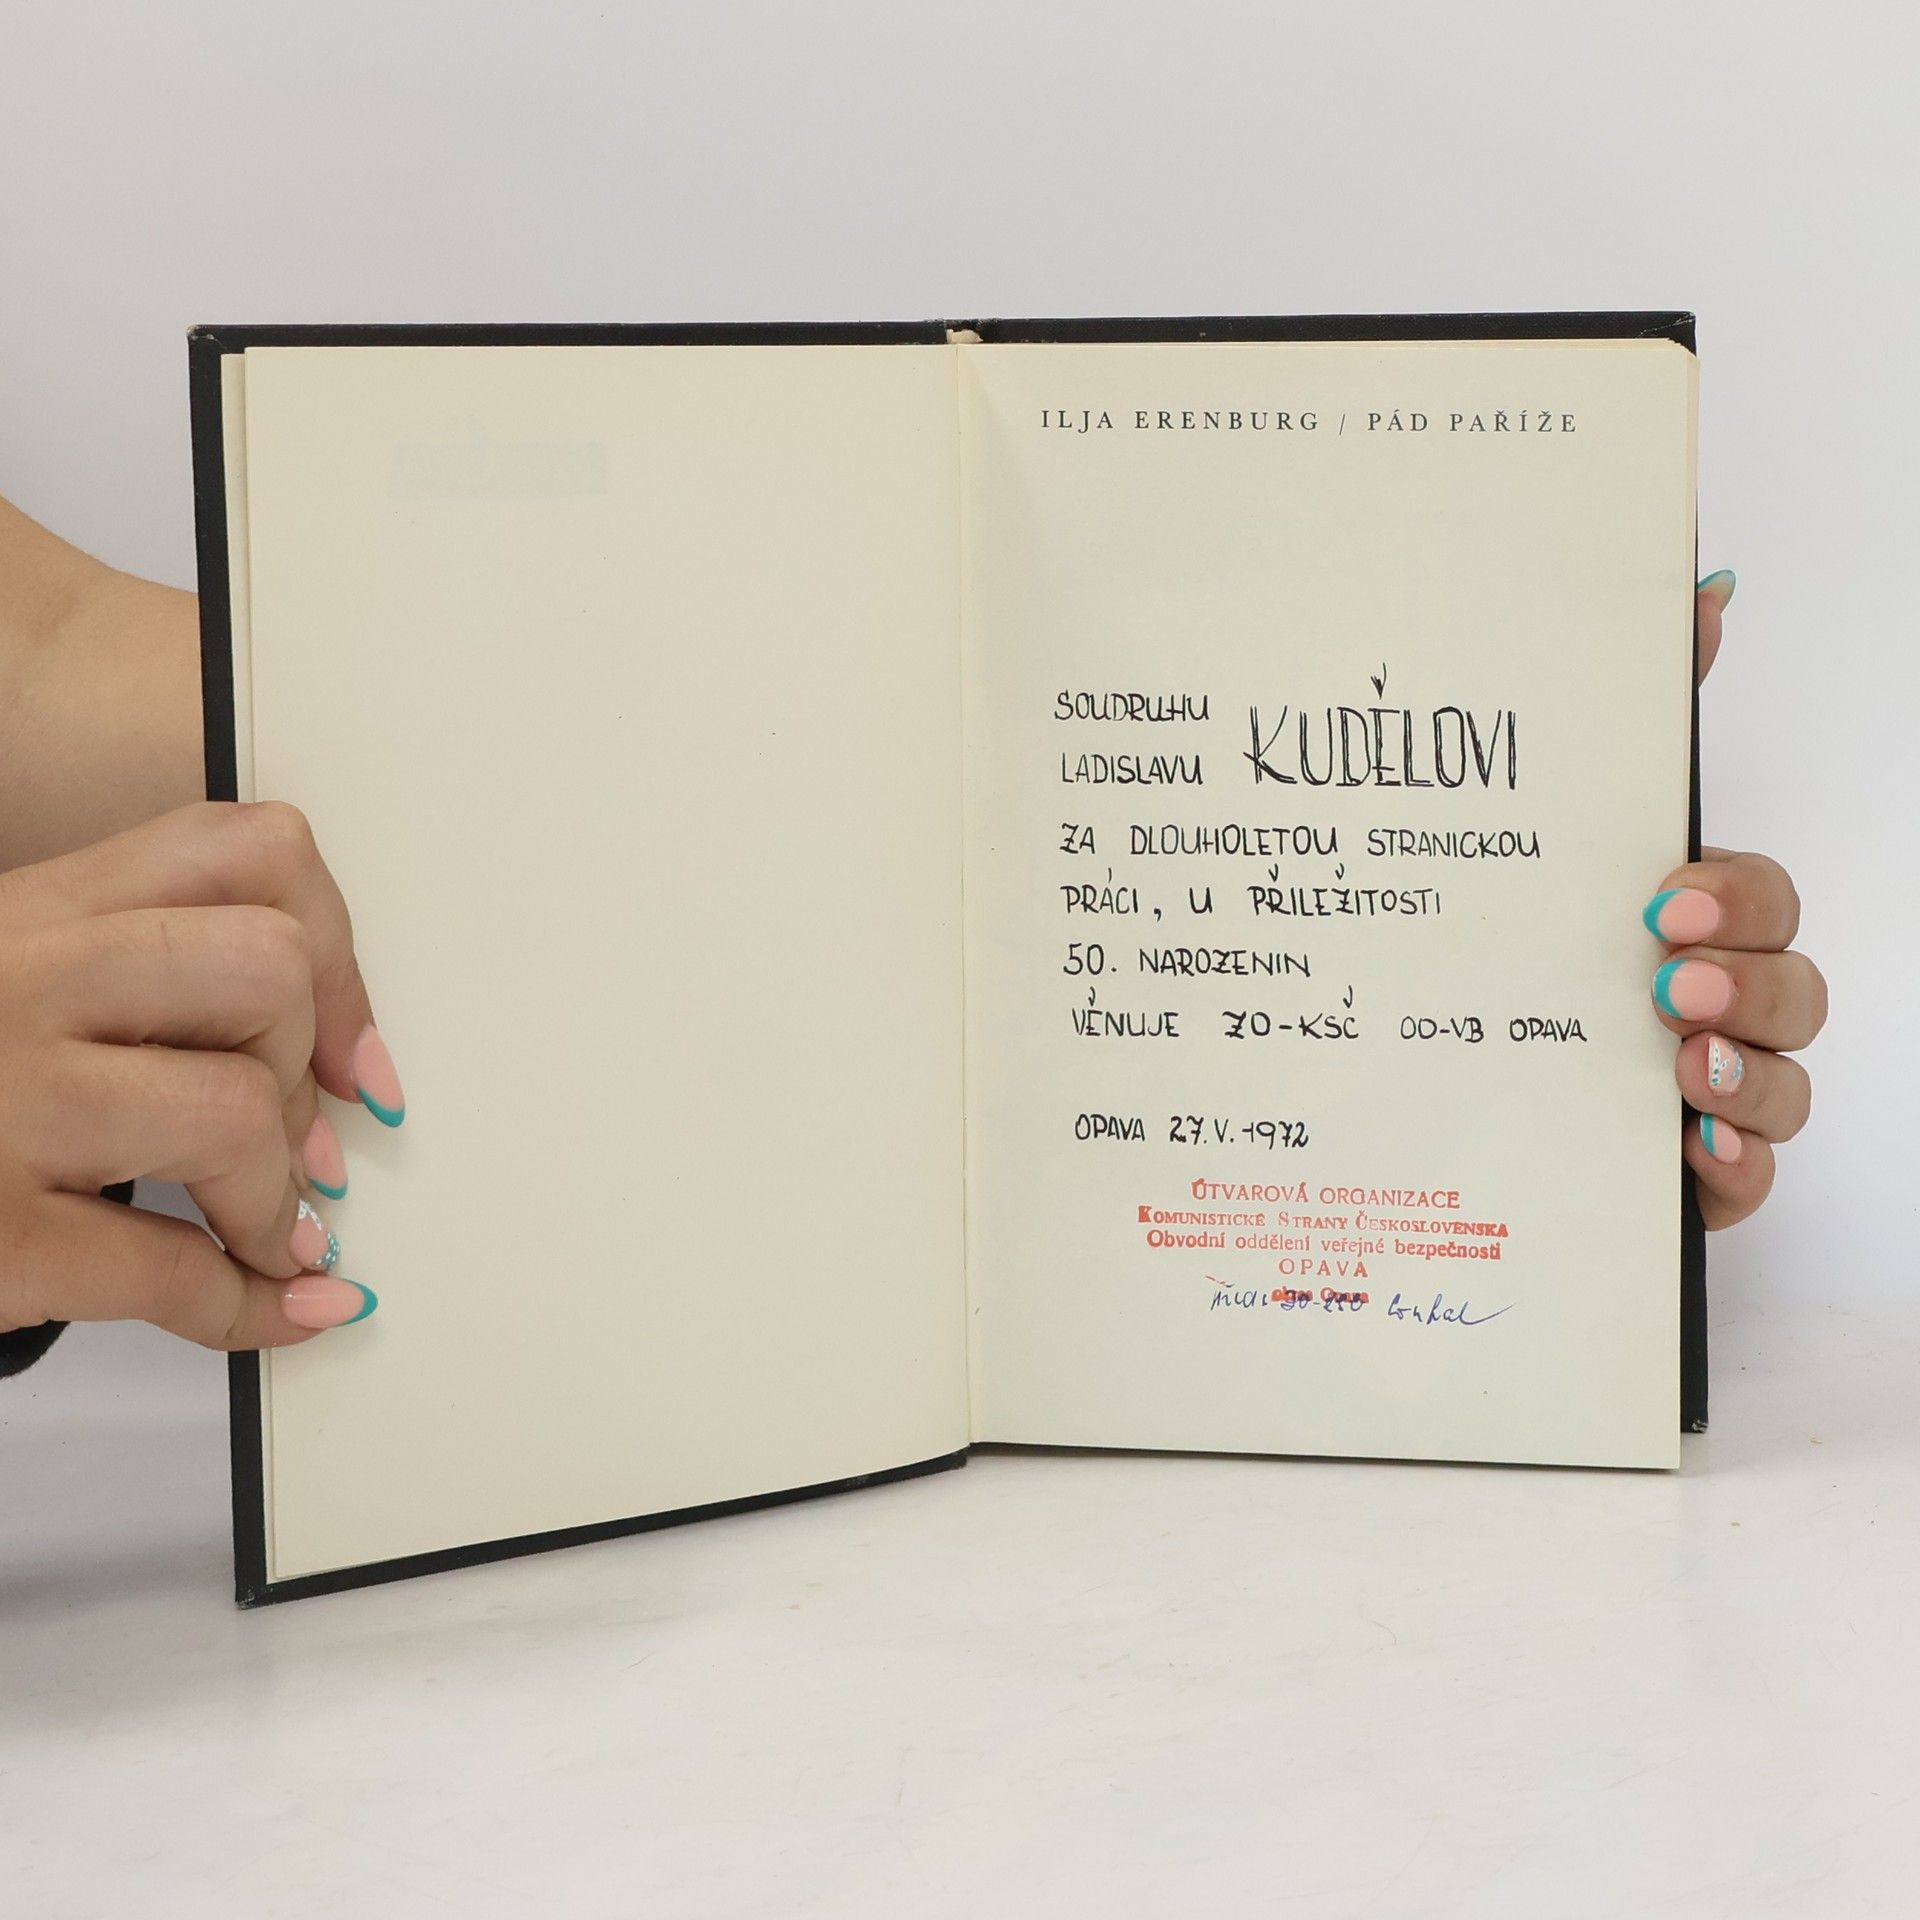 ILJA ERENBURG / PÁD PAŘÍŽE
SOUDRUHU
LADISLAVU KUDĚLOVI
ZA DLOUHOLETOU STRANICKOU
PRÁCI, U PŘILEŽITOSTI
50. NAROZENIN
VĚNUJE ZO-KSČ OO-VB OPAVA
OPAVA 27.V.1972
ÚTVAROVÁ ORGANIZACE
KOMUNISTICKÉ STRANY ČESKOSLOVENSKA
Obvodní oddělení veřejné bezpečnosti
OPAVA